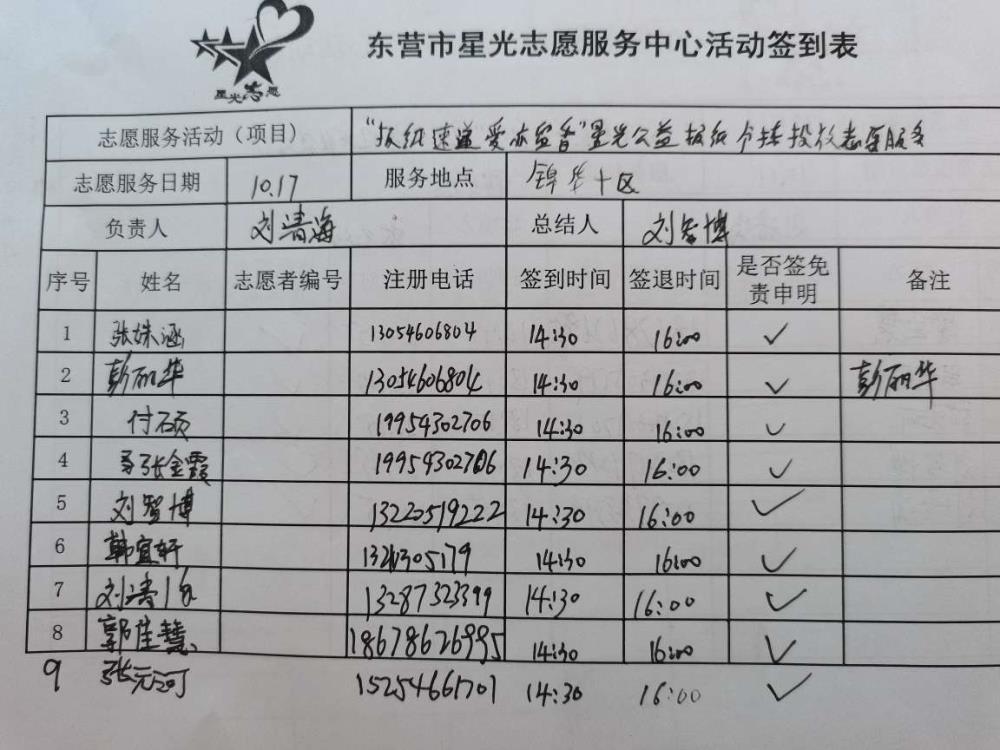 星光志愿
东营市星光志愿服务中心活动签到表
志愿服务活动（项目） "报纸速递爱亦留香"星光公益报纸分拣投放志愿服务
志愿服务日期 10.17 服务地点 锦华十区
负责人 刘清海 总结人 刘智博
序号 姓名 志愿者编号 注册电话 签到时间 签退时间 是否签免责申明 备注
1 张姝涵 13054606804 14:30 16:00 ✓
2 彭丽华 13054606804 14:30 16:00 ✓ 彭丽华
3 付硕 19954302706 14:30 16:00 ✓
4 张金霞 19954302706 14:30 16:00 ✓
5 刘智博 13220519222 14:30 16:00 ✓
6 韩宜轩 14:30 16:00 ✓
7 刘清 13287323399 14:30 16:00 ✓
8 郭佳慧 18678626995 14:30 16:00 ✓
9 张元 15254661701 14:30 16:00 ✓